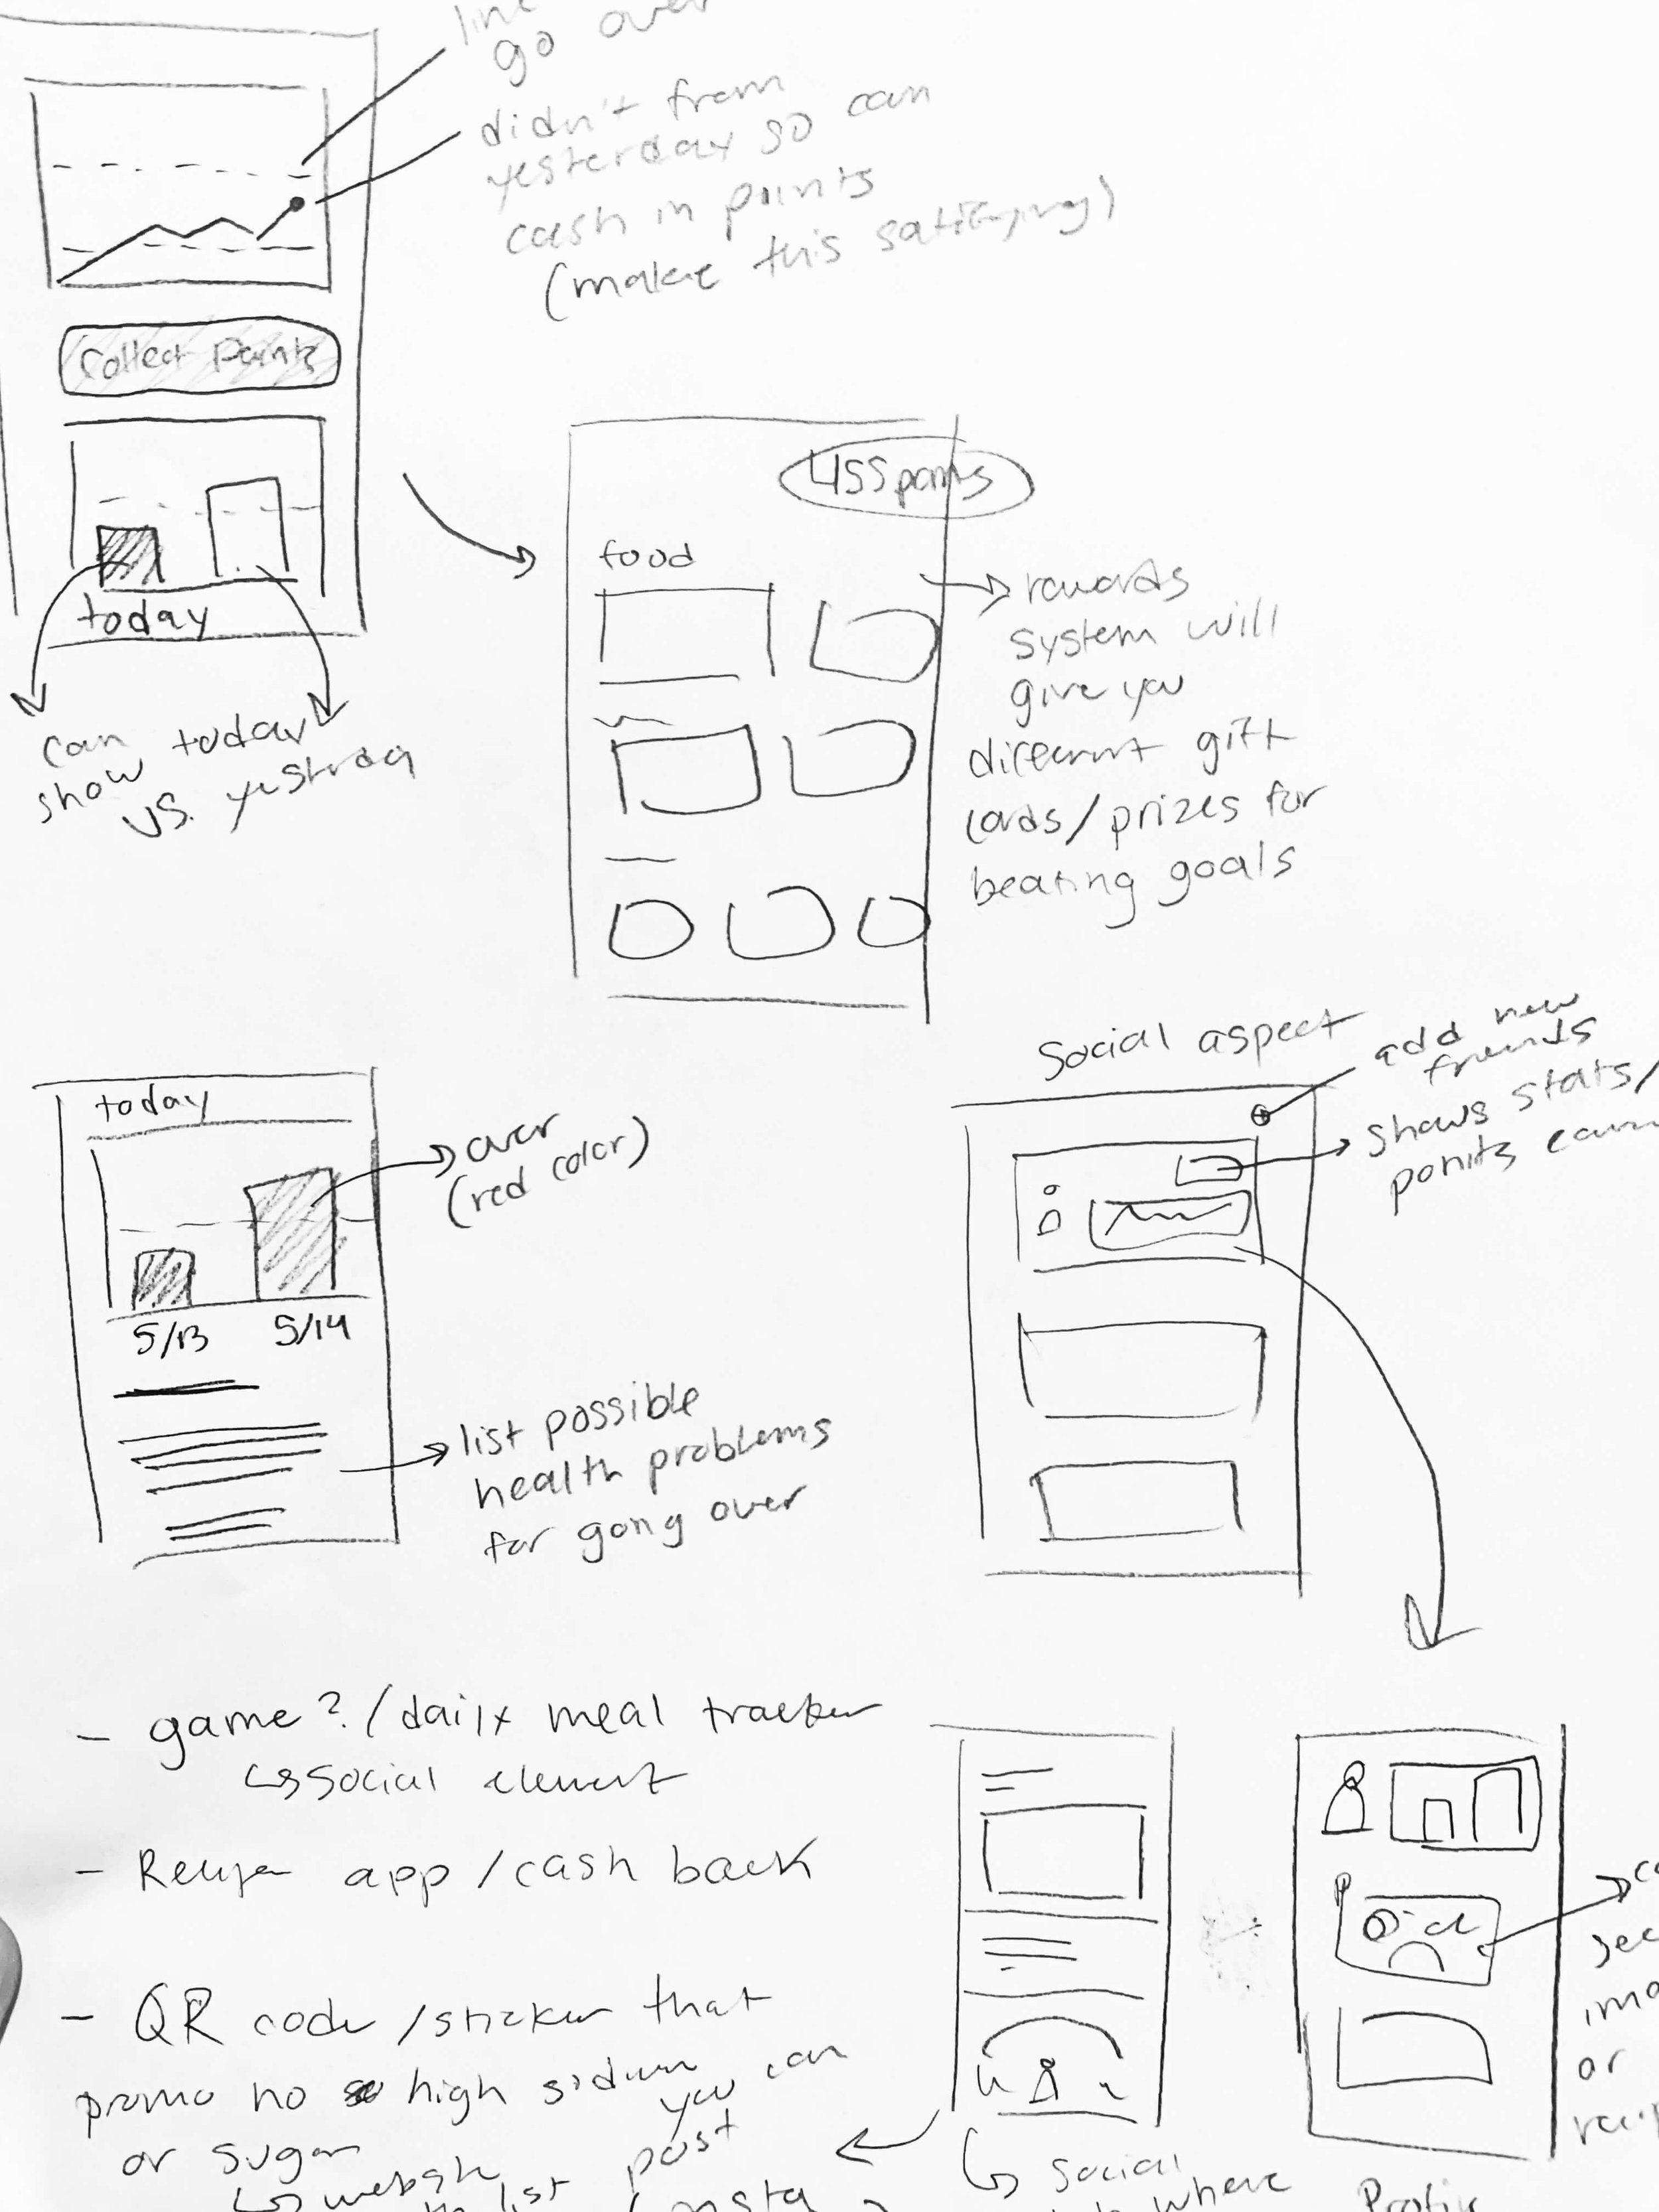 go over
didn't from
yesterday so can
cash in points
(make this satifying)
Collect Points
today
can
show today
vs. yestrday
455 points
food
rewards
system will
give you
different gift
cards/prizes for
beating goals
Social aspect
add new
friends
shows stats/
points earn
today
over
(red color)
5/13
5/14
list possible
health problems
for going over
- game? / daily meal tracker
↳ social element
- app / cash back
- QR code / sticker that
promo no high sodium
or sugar
↳ website
list
you can
post
(insta
↳ social
where
see
or